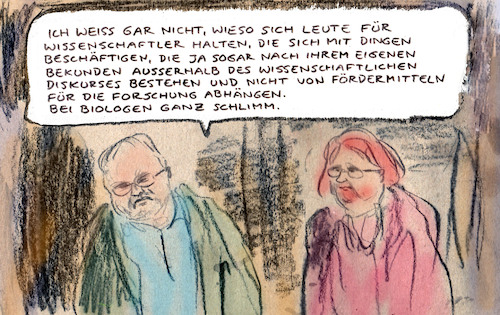 ICH WEISS GAR NICHT, WIESO SICH LEUTE FÜR
WISSENSCHAFTLER HALTEN, DIE SICH MIT DINGEN
BESCHÄFTIGEN, DIE JA SOGAR NACH IHREM EIGENEN
BEKUNDEN AUSSERHALB DES WISSENSCHAFTLICHEN
DISKURSES BESTEHEN UND NICHT VON FÖRDERMITTELN
FÜR DIE FORSCHUNG ABHÄNGEN.
BEI BIOLOGEN GANZ SCHLIMM.